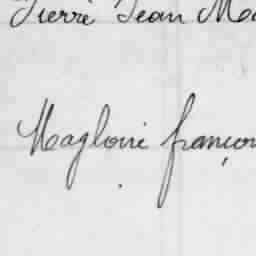 Pierre Jean Ma
Magloire françoi